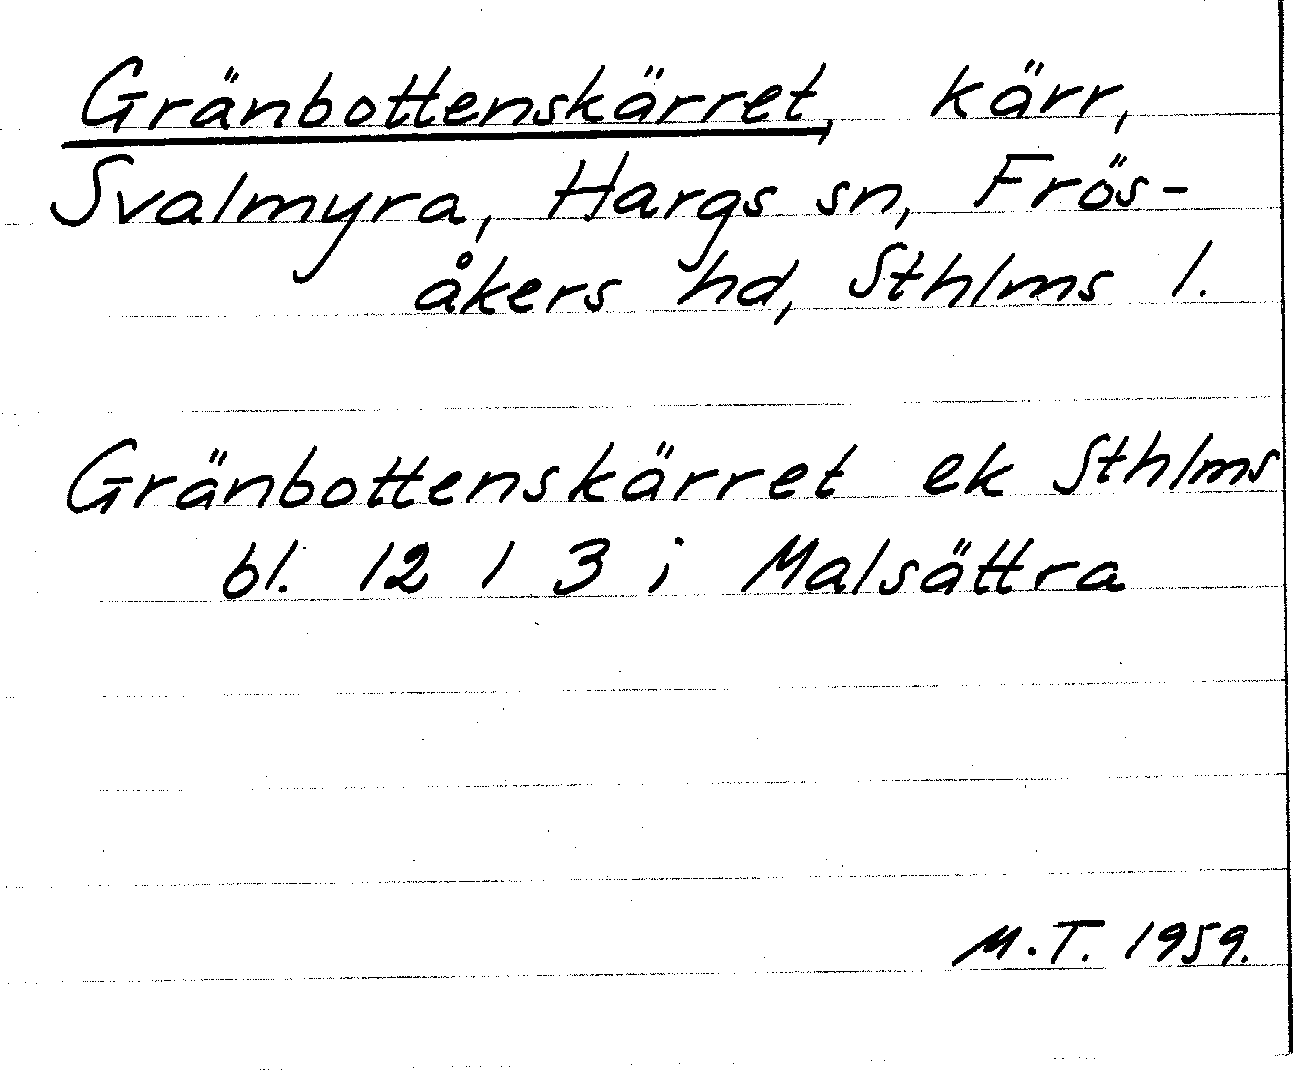 Gränbottenskärret, kärr,
Svalmyra, Hargs sn, Frös-
åkers hd, Sthlms l.
Gränbottenskärret ek Sthlms
bl. 12 I 3 i Malsättra
M.T. 1959.